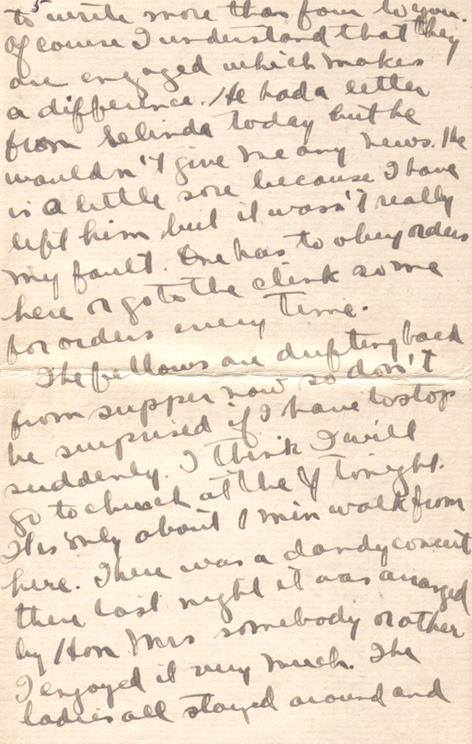 to write more than four to you.
Of course I understand that they
are engaged which makes
a difference. He had a letter
from Selinda today but he
wouldn't give me any news. He
is a little sore because I have
left him but it wasn't really
my fault. One has to obey orders
here or go to the clink so me
for orders every time.
The fellows are drifting back
from supper now so don't
be surprised if I have to stop
suddenly. I think I will
go to church at the Y tonight.
It is only about 1 min walk from
here. There was a dandy concert
there last night it was arranged
by Hon Mrs somebody or other
I enjoyed it very much. The
ladies all stayed around and